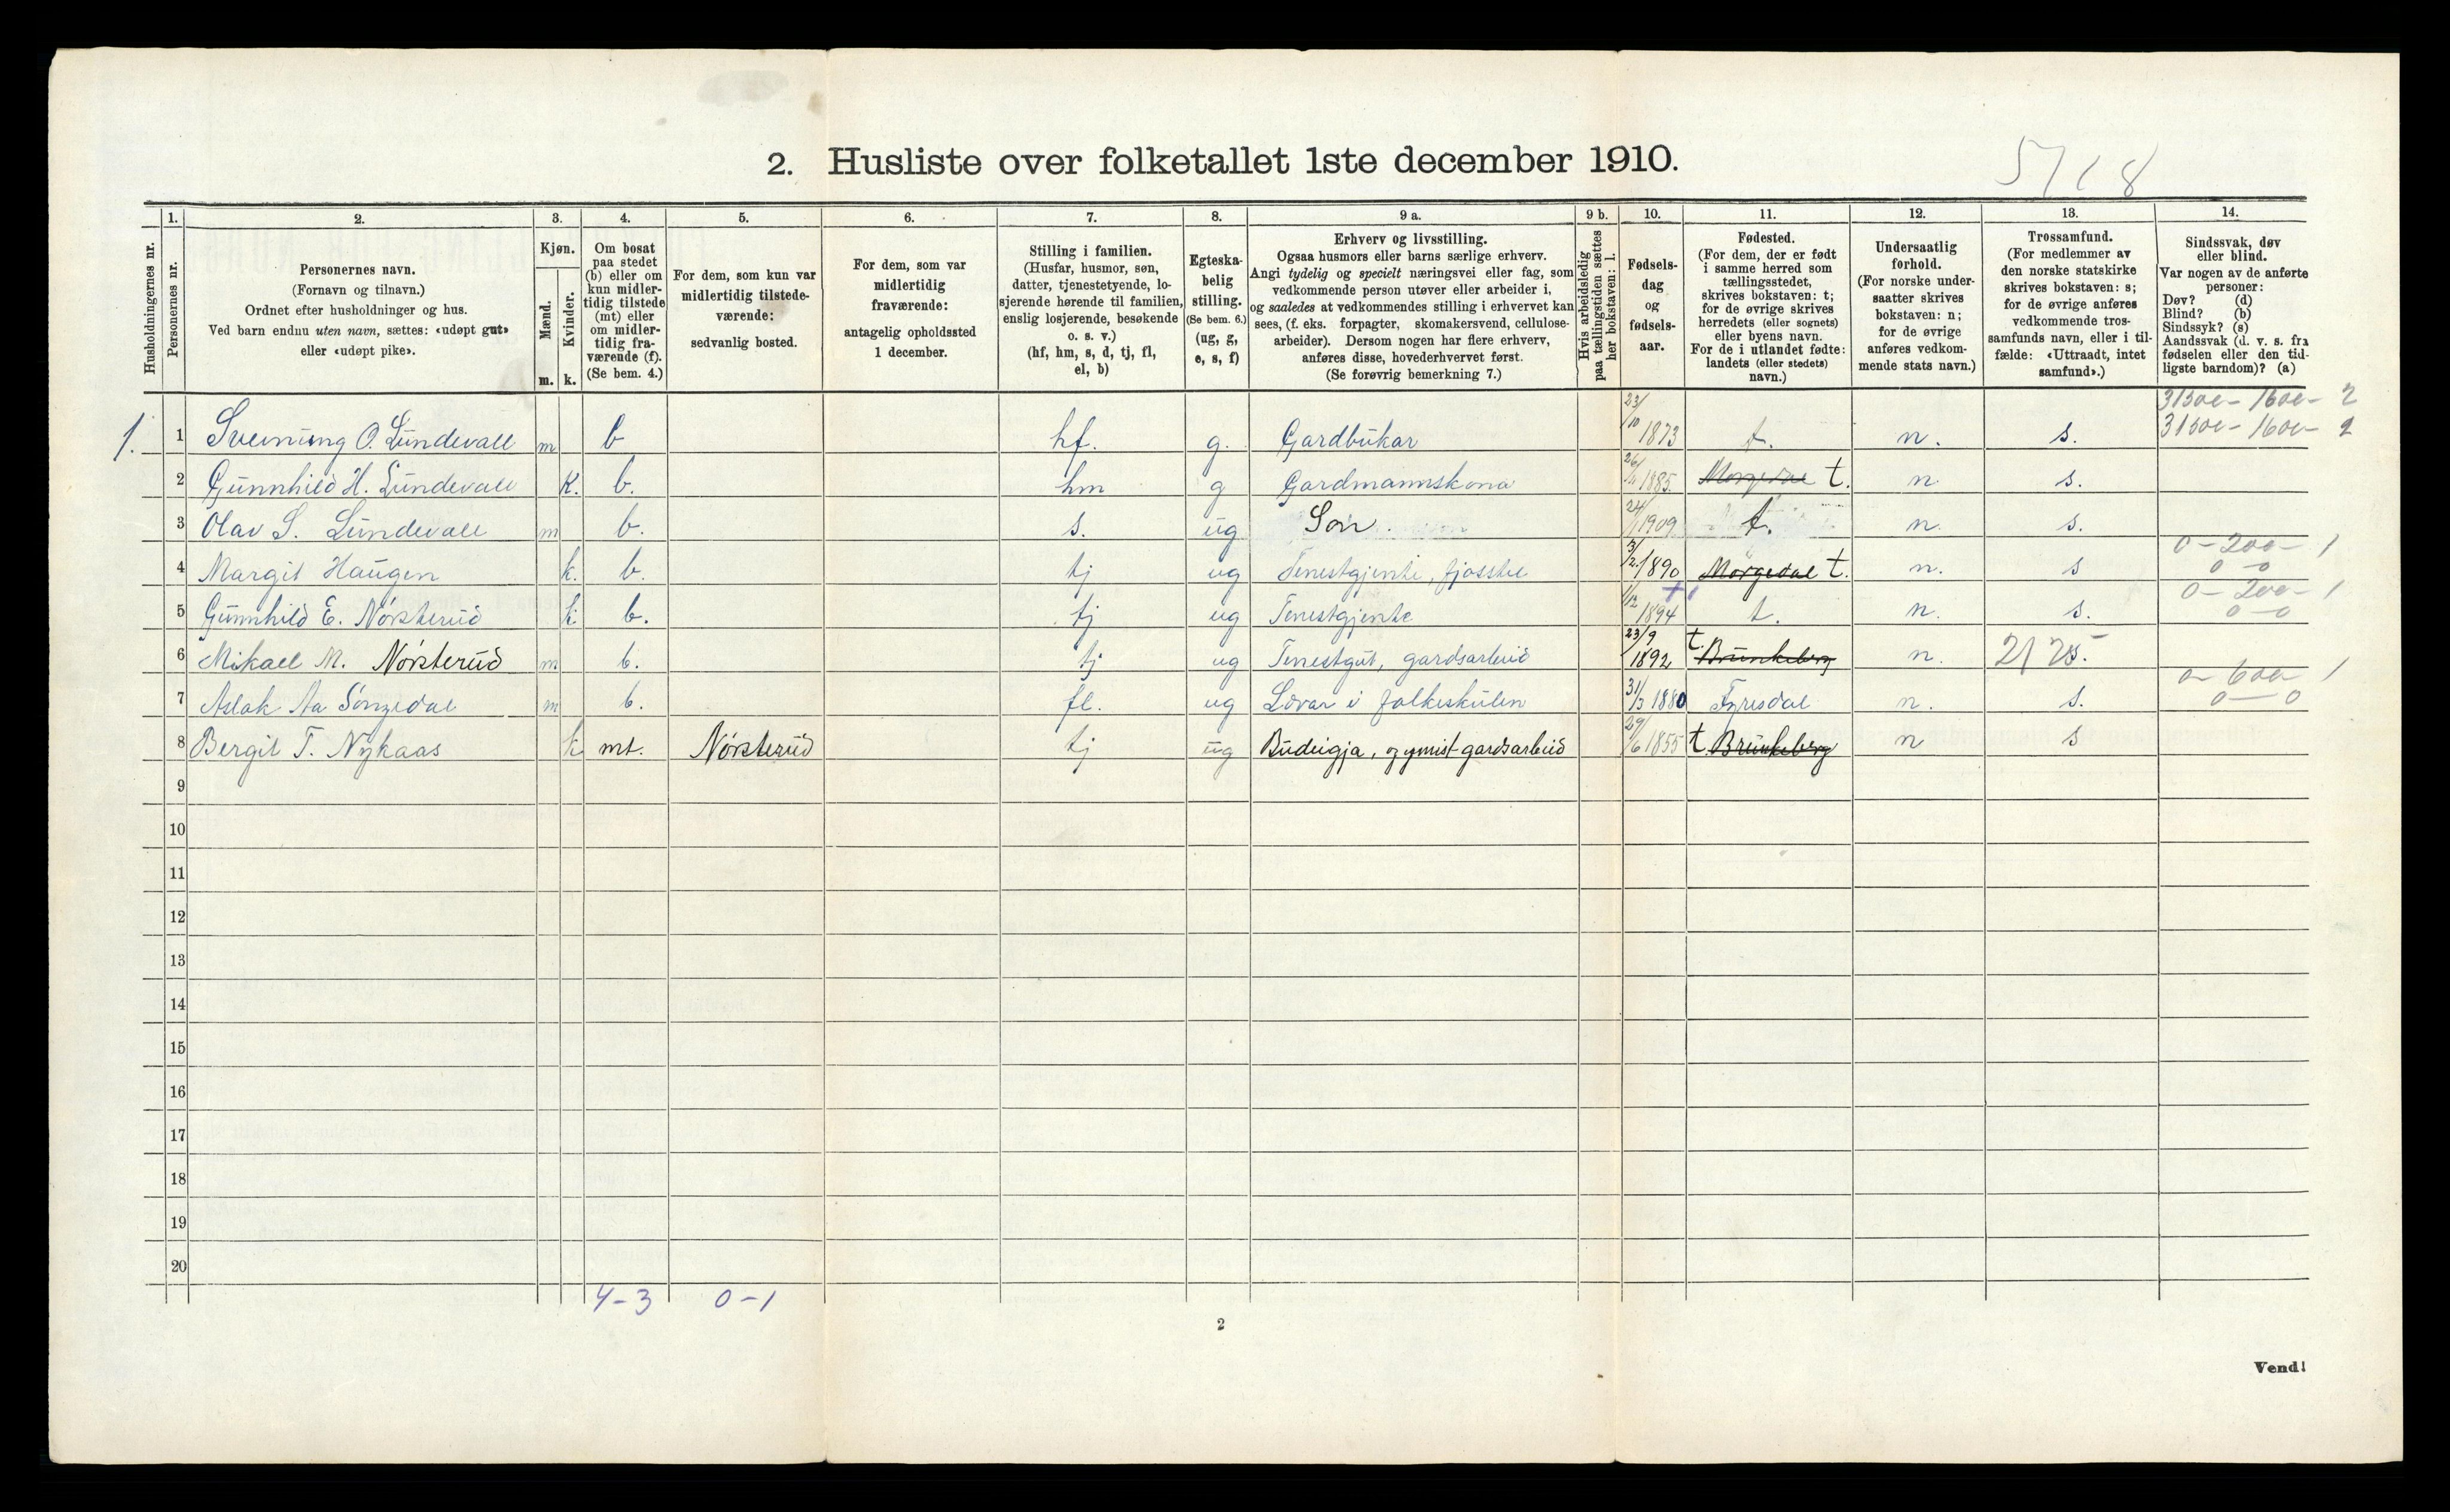 2. Husliste over folketallet 1ste december 1910.
5718
Husholdningernes nr.
1. Personernes nr.
2. Personernes navn.
(Fornavn og tilnavn.)
Ordnet efter husholdninger og hus.
Ved barn endnu uten navn, sættes: «udøpt gut»
eller «udøpt pike».
3. Kjøn.
Mænd. m.
Kvinder. k.
4. Om bosat
paa stedet
(b) eller om
kun midler-
tidig tilstede
(mt) eller
om midler-
tidig fra-
værende (f).
(Se bem. 4.)
5. For dem, som kun var
midlertidig tilstede-
værende:
sedvanlig bosted.
6. For dem, som var
midlertidig
fraværende:
antagelig opholdssted
1 december.
7. Stilling i familien.
(Husfar, husmor, søn,
datter, tjenestetyende, lo-
sjerende hørende til familien,
enslig losjerende, besøkende
o. s. v.)
(hf, hm, s, d, tj, fl,
el, b)
8. Egteska-
belig
stilling.
(Se bem. 6.)
(ug, g,
e, s, f)
9 a. Erhverv og livsstilling.
Ogsaa husmors eller barns særlige erhverv.
Angi tydelig og specielt næringsvei eller fag, som
vedkommende person utøver eller arbeider i,
og saaledes at vedkommendes stilling i erhvervet kan
sees, (f. eks. forpagter, skomakersvend, cellulose-
arbeider). Dersom nogen har flere erhverv,
anføres disse, hovederhvervet først.
(Se forøvrig bemerkning 7.)
9 b. Hvis arbeidsledig
paa tællingstiden sættes
her bokstaven: l.
10. Fødsels-
dag
og
fødsels-
aar.
11. Fødested.
(For dem, der er født
i samme herred som
tællingsstedet,
skrives bokstaven: t;
for de øvrige skrives
herredets (eller sognets)
eller byens navn.
For de i utlandet fødte:
landets (eller stedets)
navn.)
12. Undersaatlig
forhold.
(For norske under-
saatter skrives
bokstaven: n;
for de øvrige
anføres vedkom-
mende stats navn.)
13. Trossamfund.
(For medlemmer av
den norske statskirke
skrives bokstaven: s;
for de øvrige anføres
vedkommende tros-
samfunds navn, eller i til-
fælde: «Uttraadt, intet
samfund».)
14. Sindssvak, døv
eller blind.
Var nogen av de anførte
personer:
Døv? (d)
Blind? (b)
Sindssyk? (s)
Aandssvak (d. v. s. fra
fødselen eller den tid-
ligste barndom)? (a)
31500- 1600- 2
1. 1 Sveinung O. Lundevall m b hf. g. Gardbukar 23/10 1873 t. n. s. 31500- 1600- 2
2 Gunnhild H. Lundevall k. b. hm g Gardmannskona 1885. Morgedal t. n. s.
3 Olav S. Lundevall m b. s. ug Son. 1909 t. n. s.
0-200- 1
4 Margit Haugen k. b. tj ug Tenestgjente, fjosstel 3/2 1890 Morgedal t. n. s 0-0
0-200- 1
5 Gunnhild E. Norsterud k b. tj ug Tenestgjente 1/12 1894 t. n. s. 0-0
6 Mikael M. Norsterud m b. tj ug Tenestgut, gardsarbeid 23/9 1892 t. Brunkeberg n. s.
0- 600- 1
7 Aslak Aa Songedal m b. fl. ug Lærar i folkeskulen 31/3 1880 Fyresdal n. s. 0-0
8 Bergit T. Nykaas k mt. Norsterud tj ug Budeigja, og ymist gardsarbeid 29/6 1855 t. Brunkeberg n s
9
10
11
12
13
14
15
16
17
18
19
20
4-3 0-1
2
Vend!